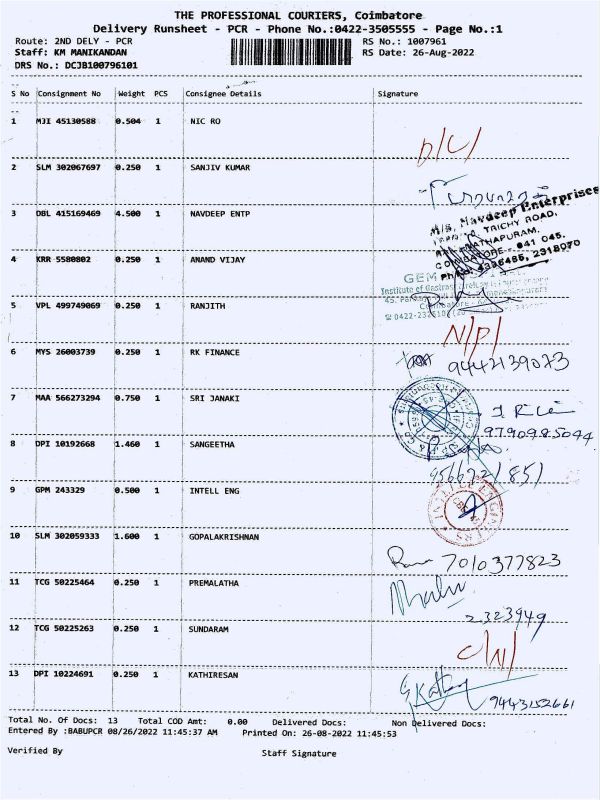 THE PROFESSIONAL COURIERS, Coimbatore
Delivery Runsheet - PCR - Phone No.:0422-3505555 - Page No.:1
Route: 2ND DELY - PCR RS No.: 1007961
Staff: KM MANIKANDAN RS Date: 26-Aug-2022
DRS No.: DCJB100796101
S No Consignment No Weight PCS Consignee Details Signature
1 MJI 45130588 0.504 1 NIC RO
D/C/
2 SLM 302067697 0.250 1 SANJIV KUMAR
3 DBL 415169469 4.500 1 NAVDEEP ENTP
M/s. Navdeep Enterprises
TRICHY ROAD,
RAMANATHAPURAM,
COIMBATORE - 641 045.
Ph No: 4336485, 2318070
4 KRR 5580802 0.250 1 ANAND VIJAY
GEM
Institute of Gastroenterology
45,
Coimbatore
5 VPL 499749069 0.250 1 RANJITH
N/P/
6 MYS 26003739 0.250 1 RK FINANCE
9442139073
7 MAA 566273294 0.750 1 SRI JANAKI
9790985094
8 DPI 10192668 1.460 1 SANGEETHA
9566721851
9 GPM 243329 0.500 1 INTELL ENG
10 SLM 302059333 1.600 1 GOPALAKRISHNAN
7010377823
11 TCG 50225464 0.250 1 PREMALATHA
2323949
12 TCG 50225263 0.250 1 SUNDARAM
C/N/
13 DPI 10224691 0.250 1 KATHIRESAN
9443152661
Total No. Of Docs: 13 Total COD Amt: 0.00 Delivered Docs: Non Delivered Docs:
Entered By :BABUPCR 08/26/2022 11:45:37 AM Printed On: 26-08-2022 11:45:53
Verified By Staff Signature